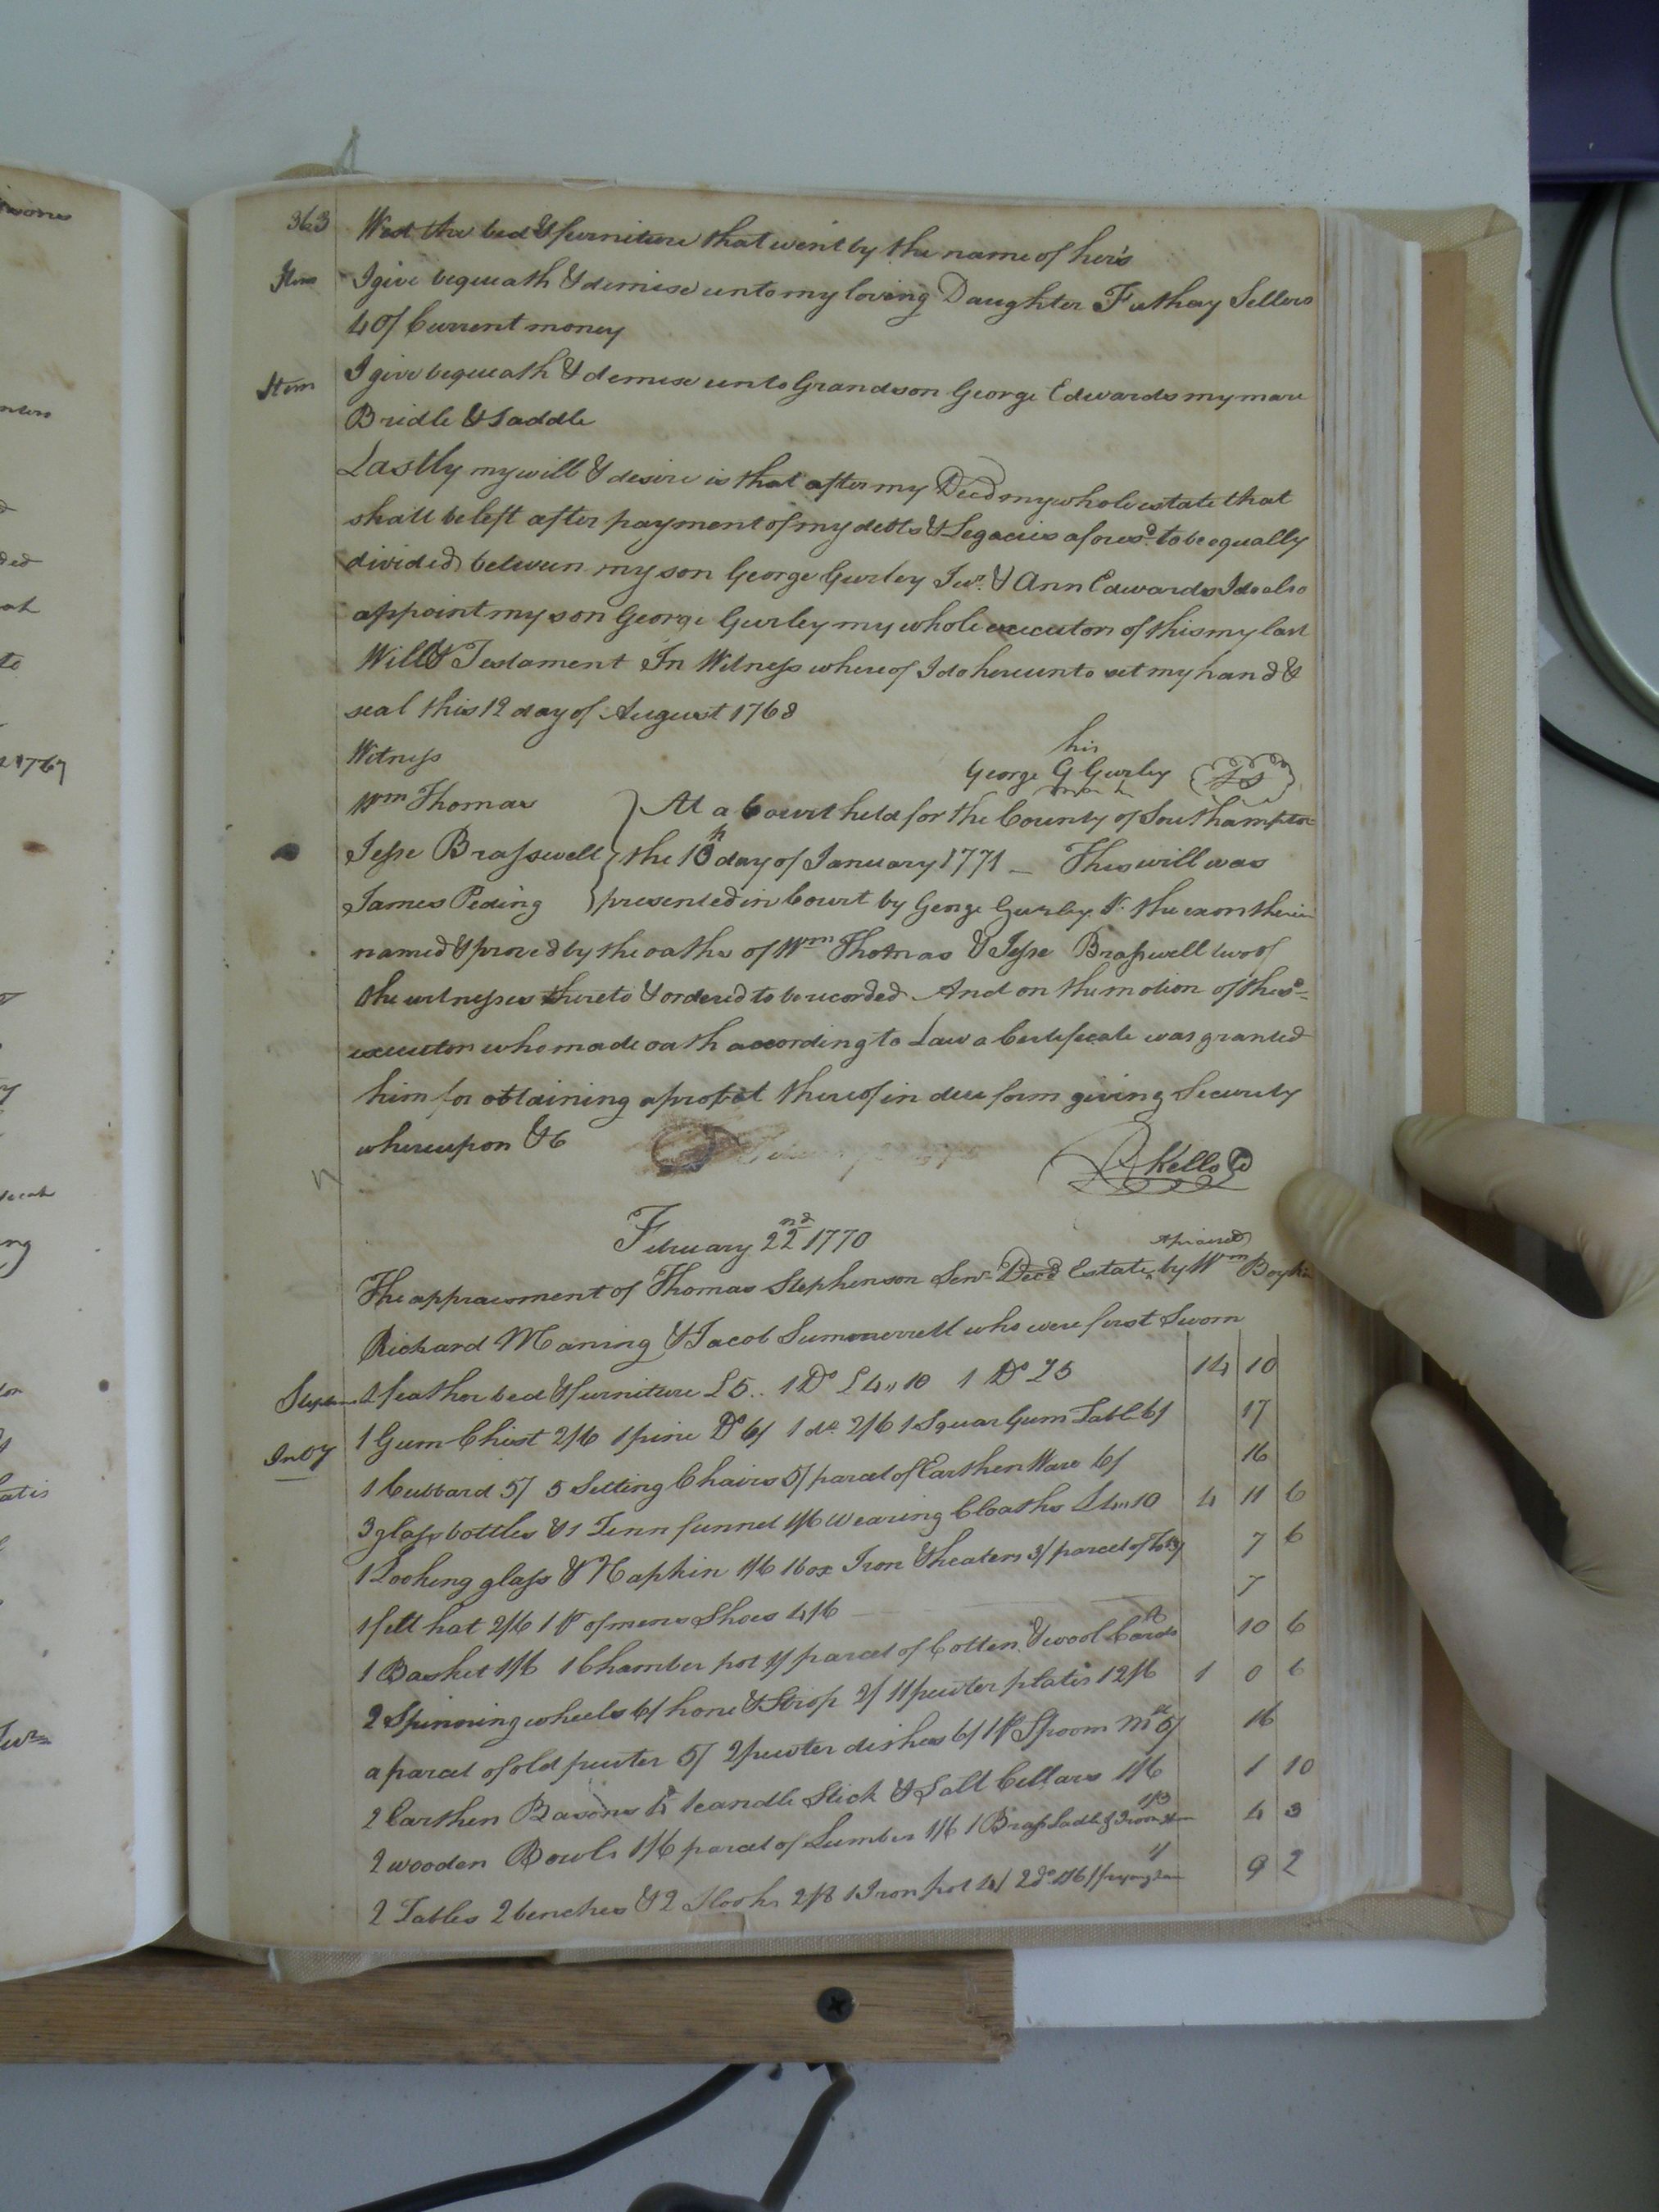 363 West the bed & furniture that went by the name of hers
Item I give bequeath & demise unto my loving Daughter Futhey Sellers
40/ Current money
Item I give bequeath & demise unto Grandson George Edwards my mare
Bridle & Saddle
Lastly my will & desire is that after my Decd my whole estate that
shall be left after payment of my debts & Legacies aforesd. to be equally
divided between my son George Gurley Junr. & Ann Edwards I do also
appoint my son George Gurley my whole executor of this my last
Will & Testament In Witness whereof I do hereunto set my hand &
seal this 12 day of August 1768
his
Witness George G Gurley LS
mark
Wm Thomas At a Court held for the County of Southampton
Jesse Brasswell the 10th day of January 1771 – This will was
James Peding presented in Court by George Gurley Jr. the exor therein
named & proved by the oaths of Wm Thomas & Jesse Braswell two of
the witnesses thereto & ordered to be recorded And on the motion of the sd
executor who made oath according to Law a Certificate was granted
him for obtaining a probat thereof in due form giving Security
whereupon &c
R Kello
February 22nd 1770
Apraised
The appraisment of Thomas Stephenson Senr Decd Estate ^ by Wm Boykin
Richard Maning & Jacob Summerrell who were first Sworn
1 feather bed & furniture £5.. 1 Do £4,,10 1 Do £5 14 10
1 Gum Chist 2/6 1 pine Do 6/ 1 do 2/6 1 Squar Gum Table 6/ 17
Invy 1 Cubbard 5/ 5 Setting Chairs 5/ parcel of Earthen Ware 6/ 16
3 glass bottles & 1 Tinn funnel 1/6 Wearing Cloaths £4,,10 4 11 6
1 Looking glass & Napkin 1/6 1 box Iron & heaters 3/ parcel of 7 6
1 felt hat 2/6 1 pr of mens Shoes 4/6 7
1 Basket 1/6 1 Chamber pot 1/ parcel of Cotten & wool Cards 10 6
2 Spinning wheels 6/ hone & Strop 2/ 11 pewter plates 12/6 1 0 6
a parcel of old pewter 5/ 2 pewter dishes 6/ 1 pr Spoom mds 5/ 16
2 Earthen Basons 1 candle Stick & Salt Cellars 1/6 1 10
2 wooden Bowls 1/6 parcel of Lumber 1/6 1 Brass Ladle & Iron 1/3 4 3
2 Tables 2 benches & 2 Hooks 2/8 1 Iron pot 4/ 2 do 1/6 1 frying pan 1/ 9 2